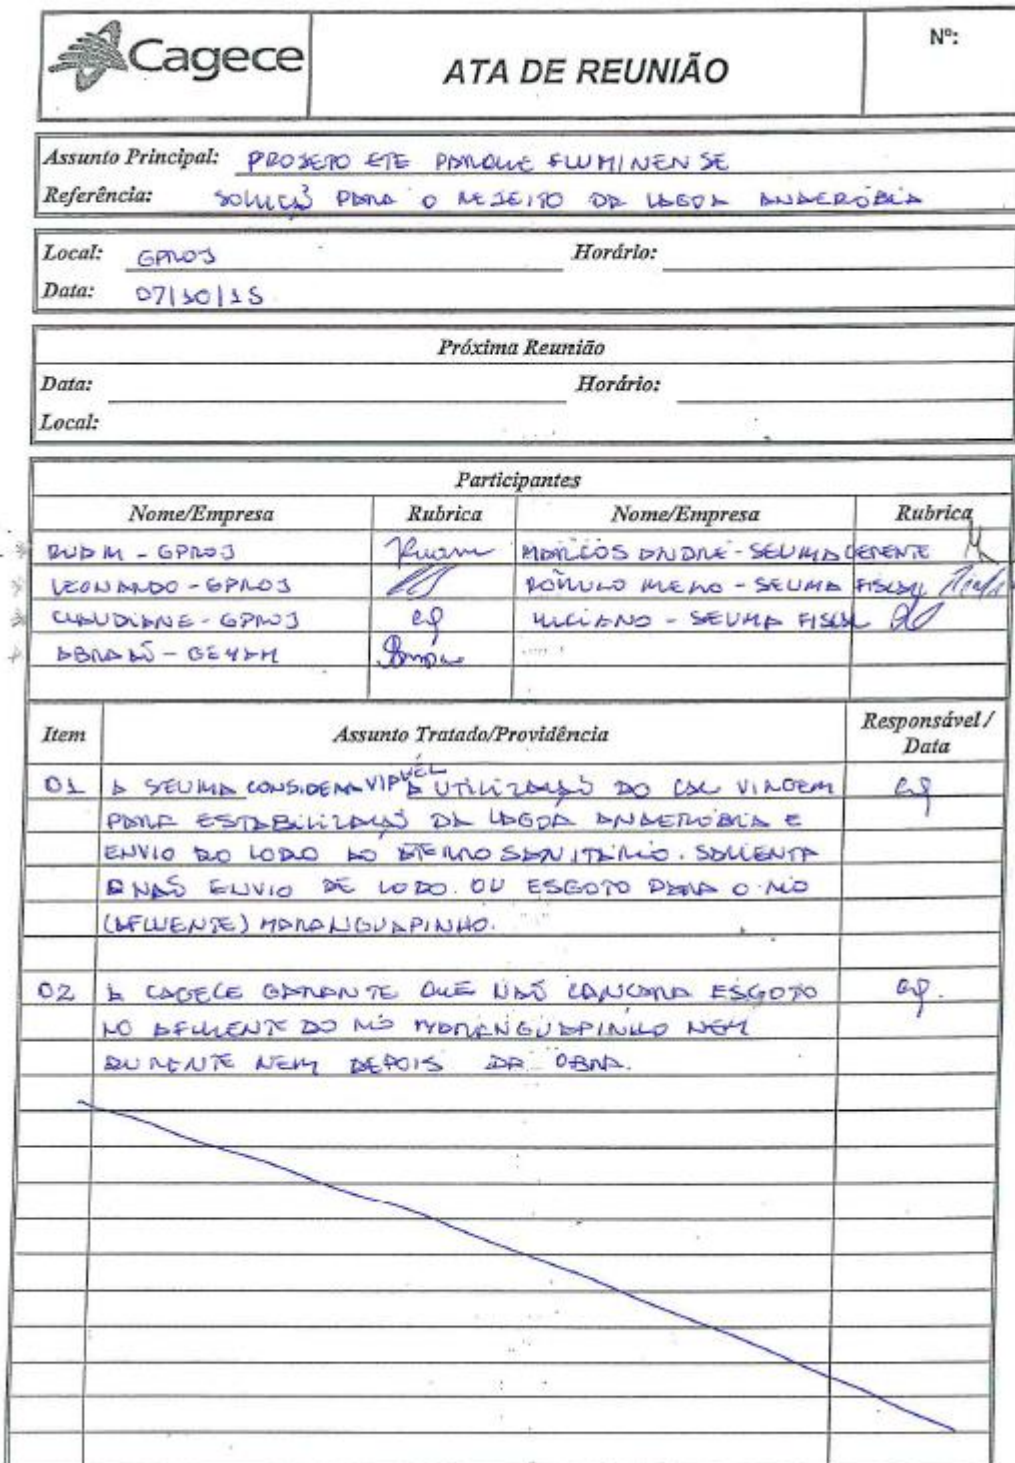 Cagece
ATA DE REUNIÃO
Nº:
Assunto Principal: PROJETO ETE PARQUE FLUMINENSE
Referência: SOLUÇÃO PARA O REJEITO DA LAGOA ANAERÓBIA
Local: GPROJ Horário:
Data: 07/10/15
Próxima Reunião
Data: Horário:
Local:
Participantes
Nome/Empresa Rubrica Nome/Empresa Rubrica
RUAM - GPROJ Ruam MARCOS ANDRÉ - SEUMA GERENTE
LEONARDO - GPROJ RÔMULO MELO - SEUMA FISCAL
CLAUDIANE - GPROJ LUCIANO - SEUMA FISCAL
ABRAÃO -
Item Assunto Tratado/Providência Responsável / Data
01 A SEUMA CONSIDERA VIÁVEL A UTILIZAÇÃO DO CAL VIRGEM
PARA ESTABILIZAÇÃO DA LAGOA ANAERÓBIA E
ENVIO DO LODO AO ATERRO SANITÁRIO. SALIENTA
O NÃO ENVIO DE LODO OU ESGOTO PARA O RIO
(AFLUENTE) MARANGUAPINHO.
02 A CAGECE GARANTE QUE NÃO LANÇARÁ ESGOTO
NO AFLUENTE DO RIO MARANGUAPINHO NEM
DURANTE NEM DEPOIS DA OBRA.